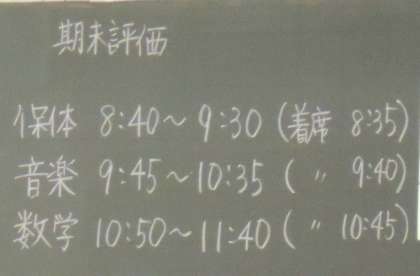 期末評価
保体 8:40～9:30 (着席 8:35)
音楽 9:45～10:35 ( 〃 9:40)
数学 10:50～11:40 ( 〃 10:45)